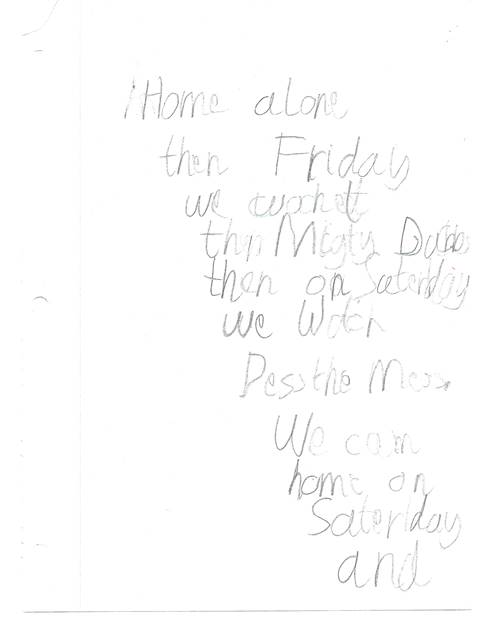 Home alone
then Friday
we wachet
then Migty Ducks
then on Saterday
we Watch
Dess the Mess.
We cam
home on
Saterday
and